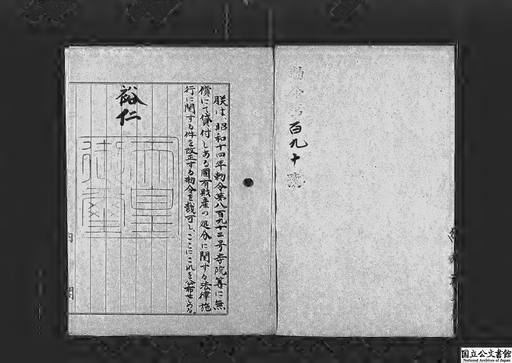 勅令第百九十號
朕は、昭和十四年勅令第八百九十二号寺院等に無
償にて貸付しある國有財産の処分に関する法律施
行に関する件を改正する勅令を裁可し、ここにこれを公布せしめる。
裕仁
天皇御璽
国立公文書館
National Archives of Japan